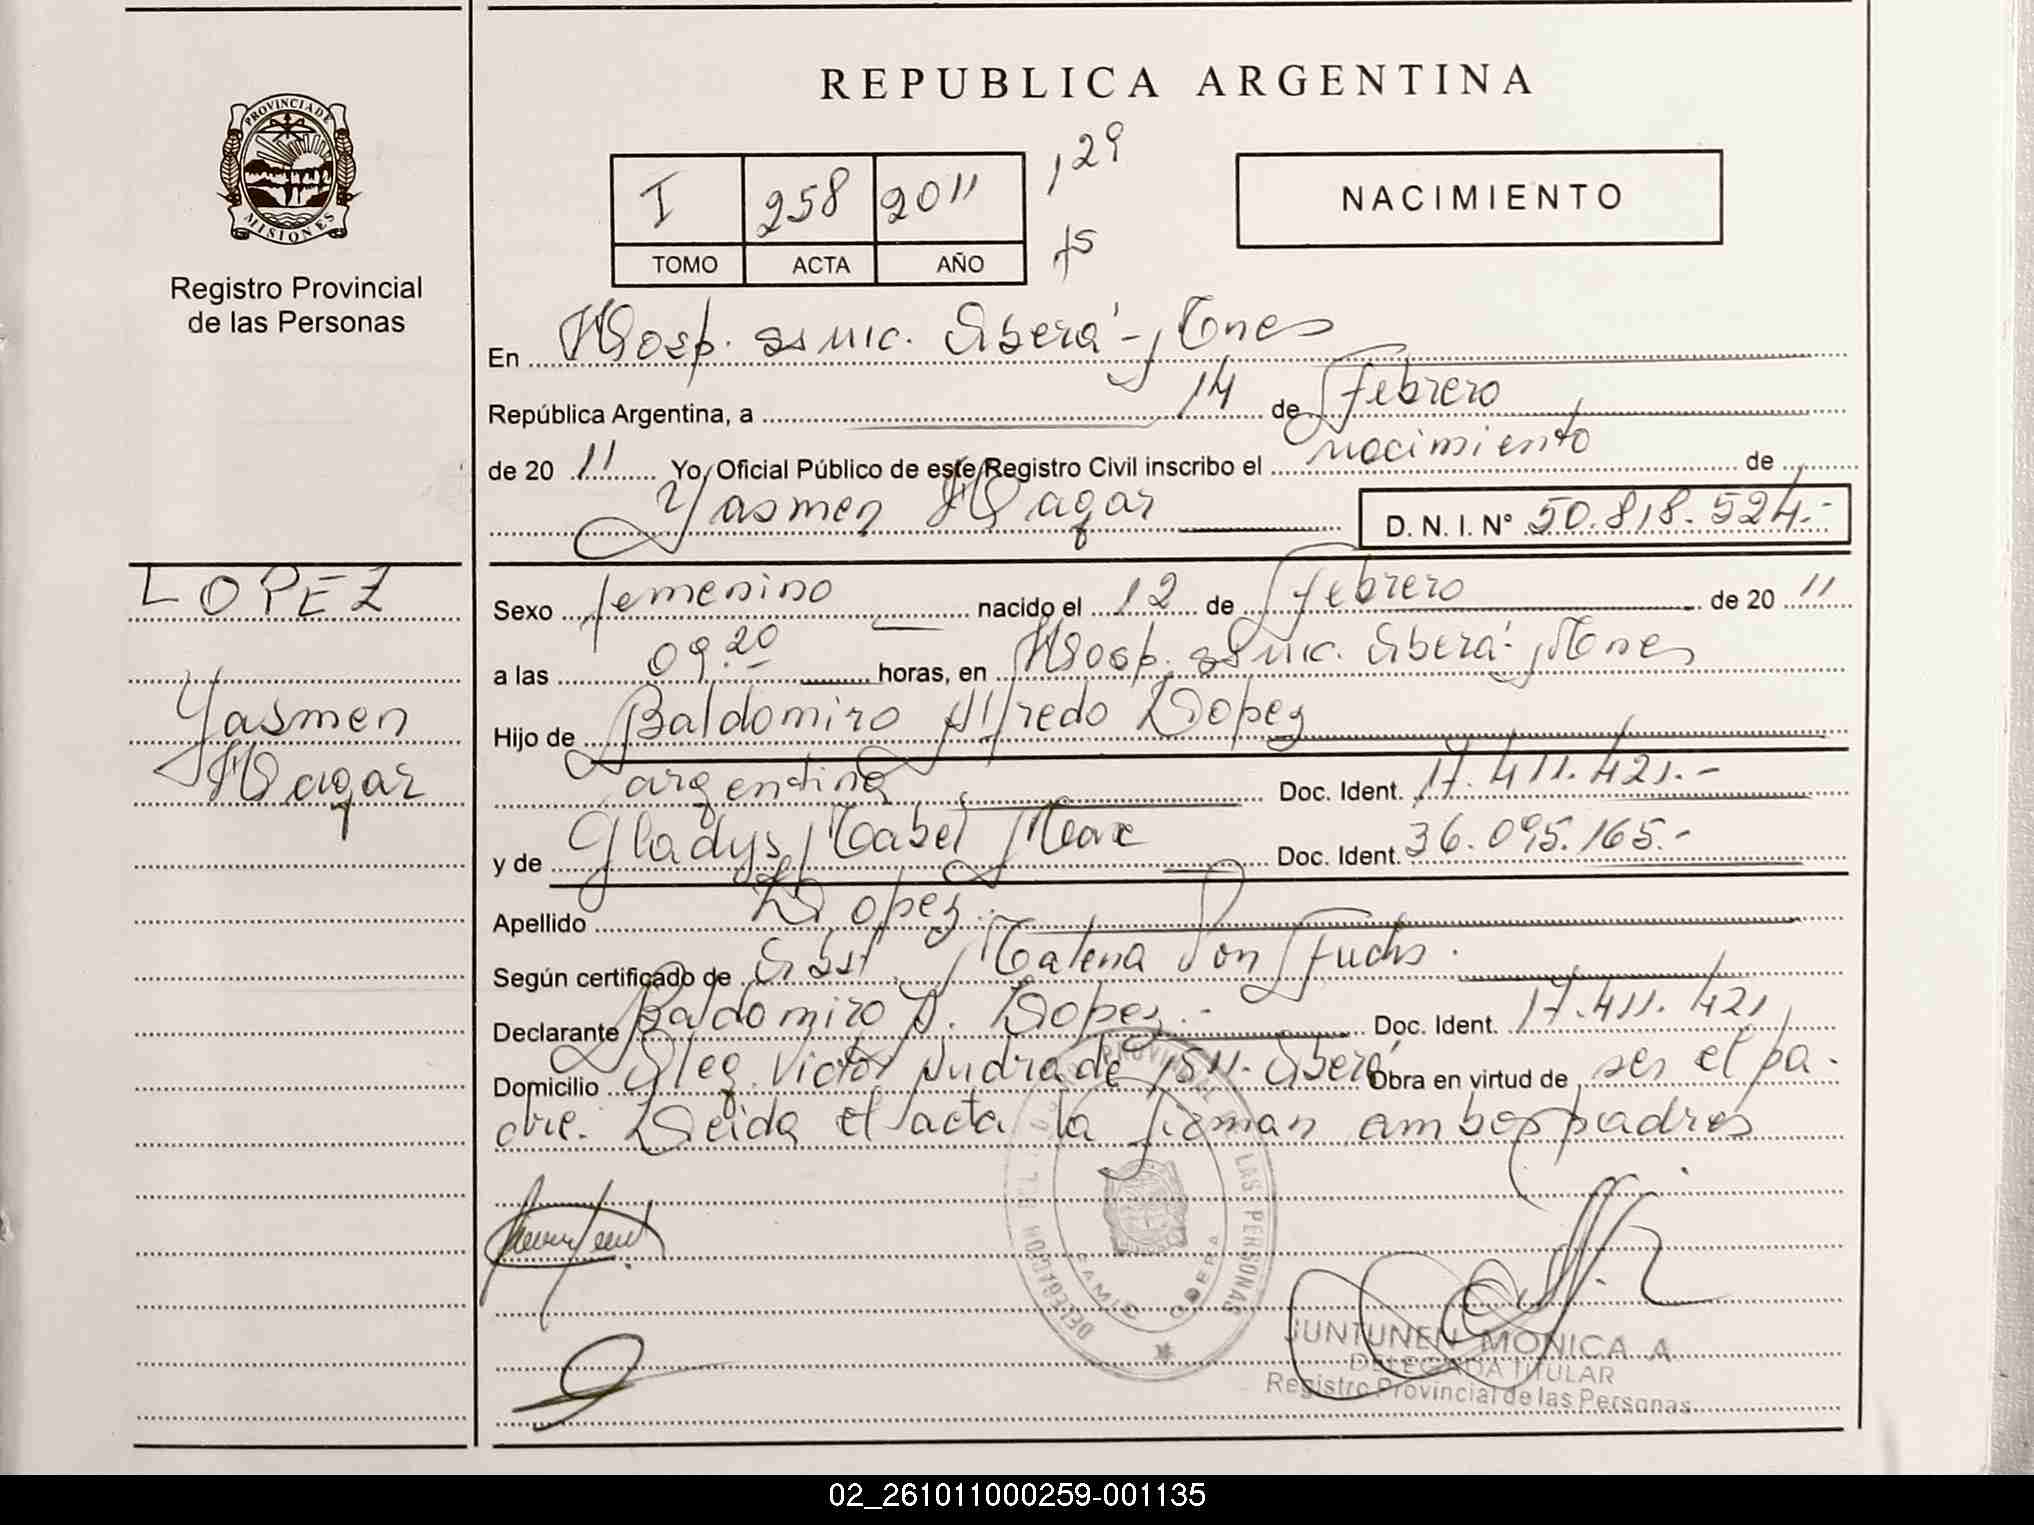 REPUBLICA ARGENTINA
PROVINCIA DE
MISIONES
Registro Provincial
de las Personas
I 258 2011
TOMO ACTA AÑO
129
NACIMIENTO
En Hosp. Oberá - Mnes
República Argentina, a 14 de Febrero
de 20 11 Yo, Oficial Público de este Registro Civil inscribo el nacimiento de
Yasmen Hagar D. N. I. N° 50.818.524.-
LOPEZ
Yasmen
Hagar
Sexo femenino nacido el 12 de Febrero de 20 11
a las 09.20 horas, en Hosp. Oberá - Mnes
Hijo de Baldomiro Alfredo Lopez
argentina Doc. Ident. 17.411.421.-
y de Gladys Mabel Doc. Ident. 36.095.165.-
Apellido Lopez.-
Según certificado de Obst. Malena Von Fuchs.
Declarante Baldomiro A. Lopez.- Doc. Ident. 17.411.421
Domicilio Victor Andrade Oberá Obra en virtud de ser el pa-
dre. Leida el acta la firman ambos padres
REGISTRO PROVINCIAL DE LAS PERSONAS
OBERA
JUNTUNEN MONICA A
DELEGADA TITULAR
Registro Provincial de las Personas
02_261011000259-001135